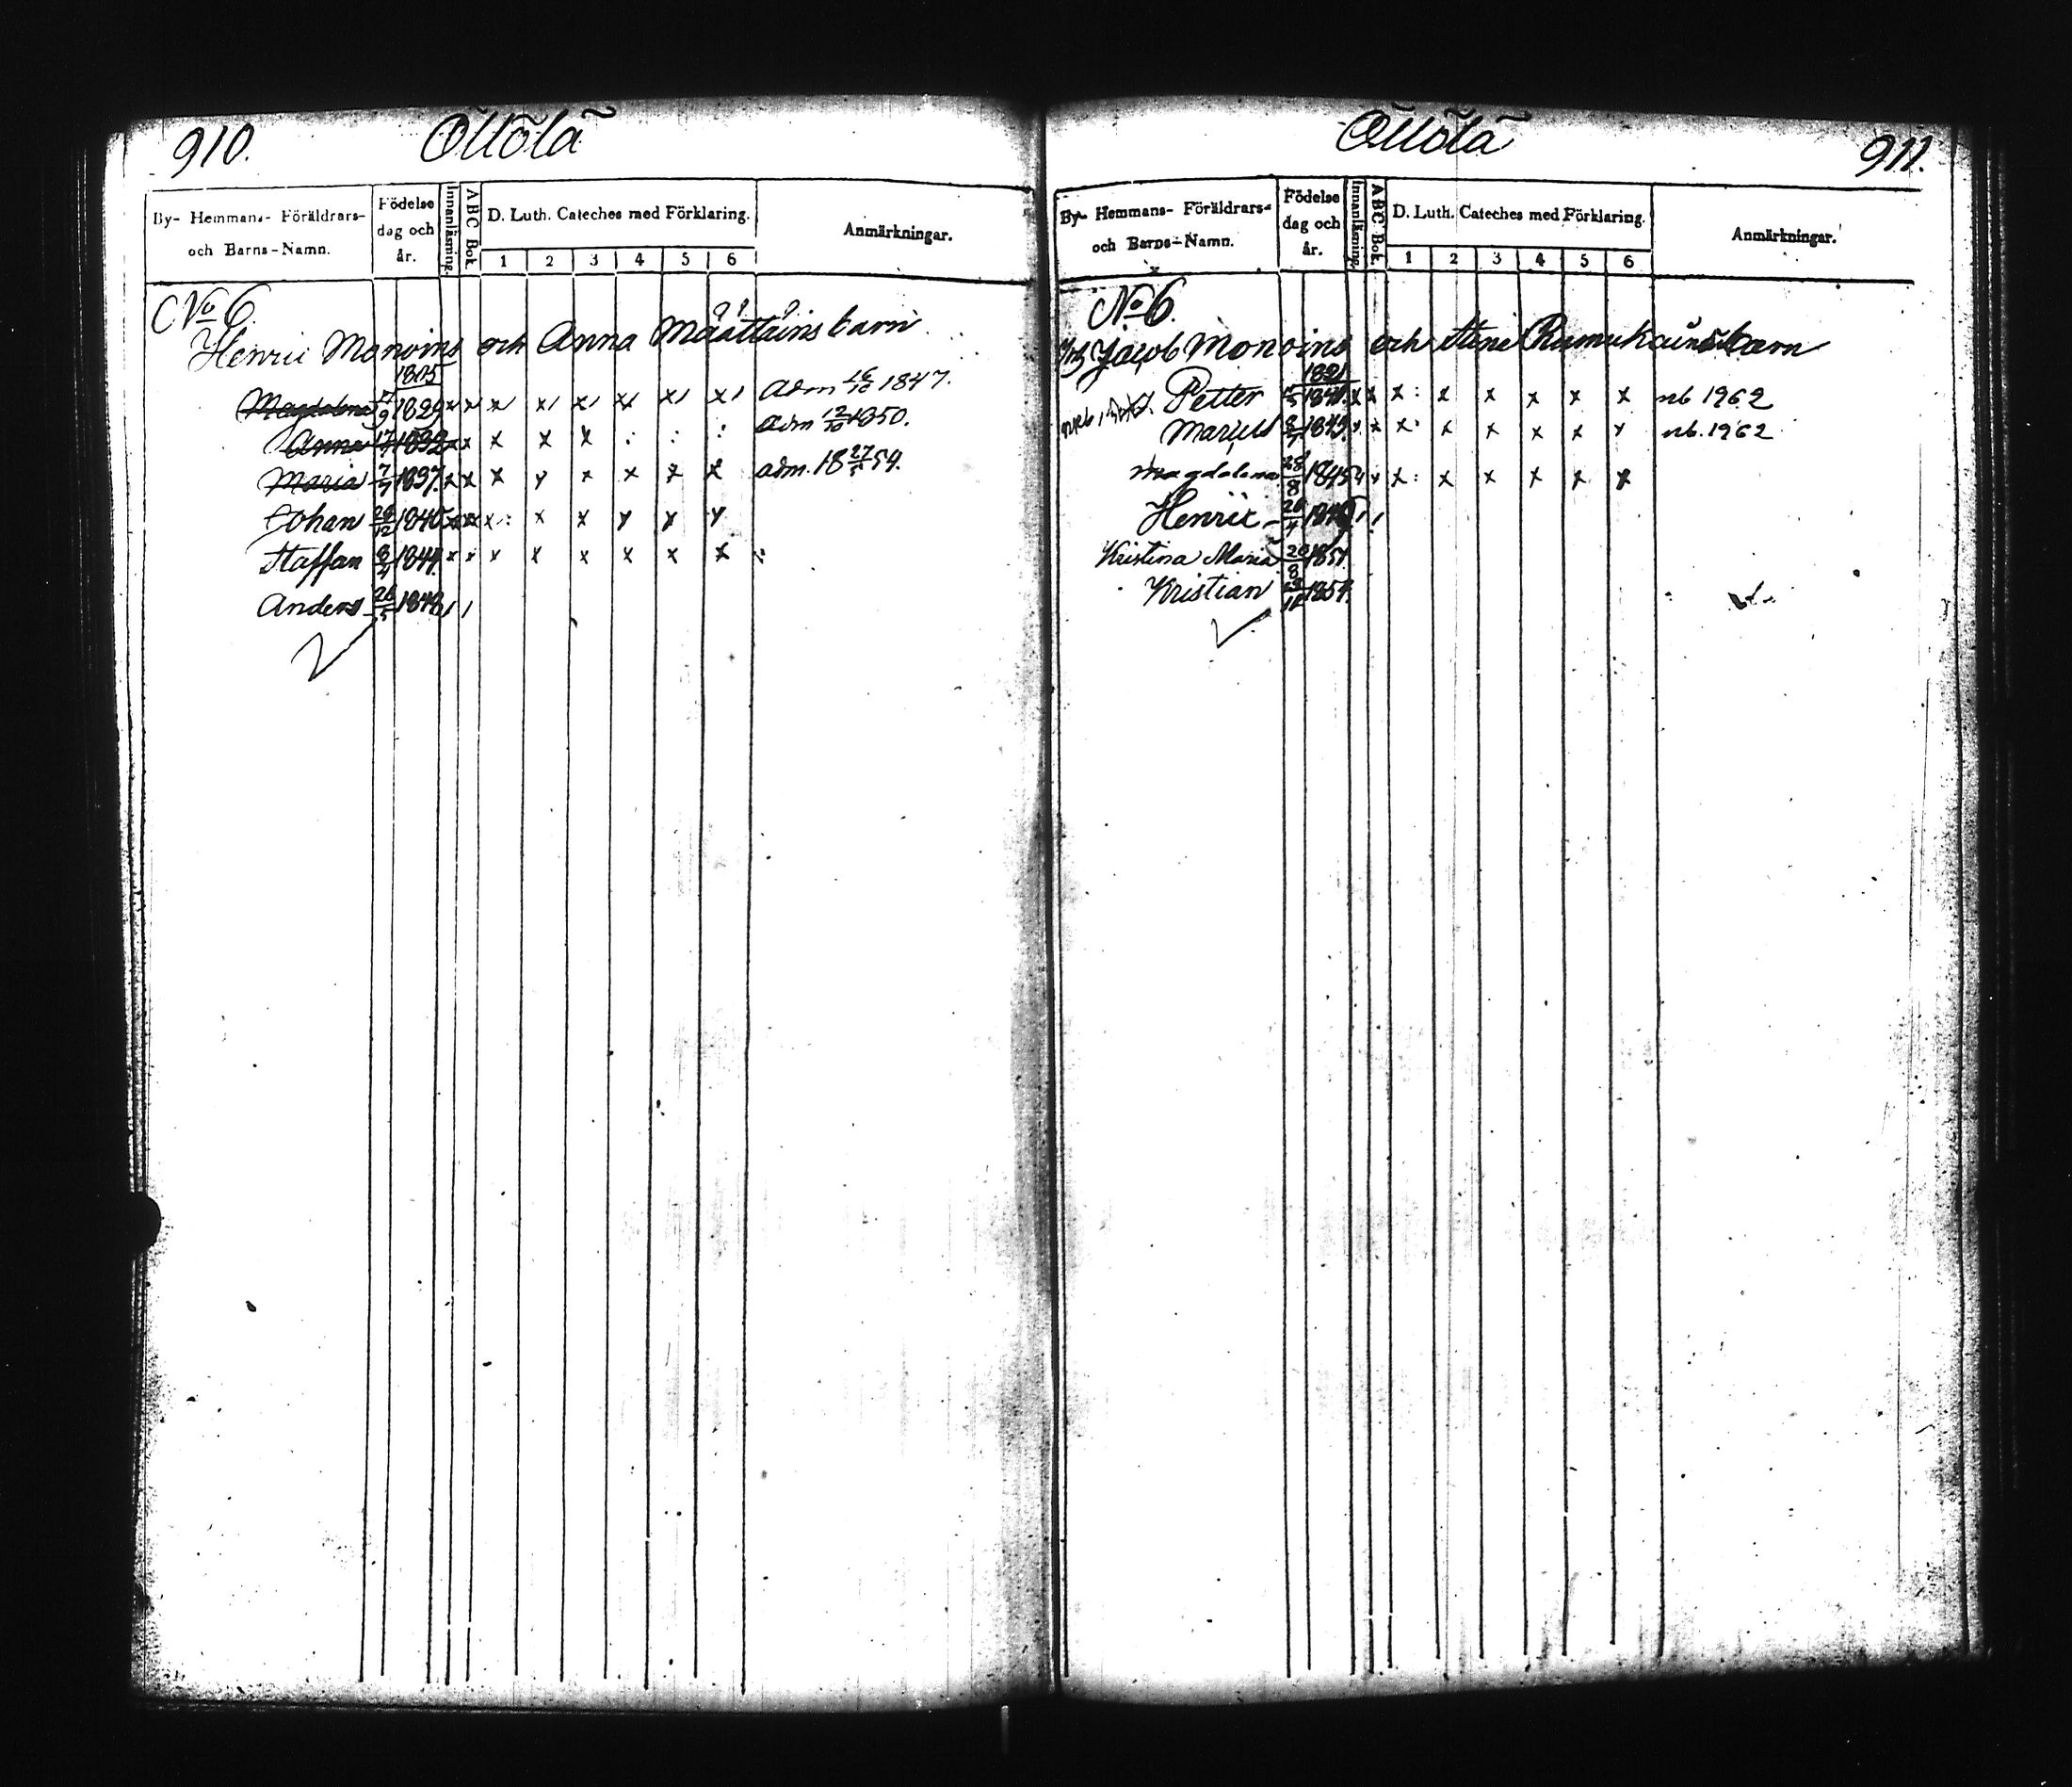 910.
Ollölä
By- Hemmans- Föräldrars- och Barns-Namn.
Födelse dag och år.
Innanläsning.
ABC Bok.
D. Luth. Cateches med Förklaring.
1 2 3 4 5 6
Anmärkningar.
No 6.
Henric Monoins och Anna Määttäins barn
1805
Magdalena 9 1829 x x x x x x x x adm 1847.
Anna 17 1832 x x x x x : : : adm 12/10 1850.
Maria 7/7 1837. x x x y x x x x adm. 18 27/5 54.
Johan 29/12 1840 x x x : x x y x y
Staffan 8/4 1844. x x x x x x x x
Anders 26/5 1848
911.
Ollölä
By- Hemmans- Föräldrars- och Barns-Namn.
Födelse dag och år.
Innanläsning.
ABC Bok.
D. Luth. Cateches med Förklaring.
1 2 3 4 5 6
Anmärkningar.
No 6.
Jacob Monoins och Stina barn
1821
Petter 1841. x x x : x x x x x nb 1962
8/7 1843. x x x x x x y nb. 1962
Magdalena 28/8 1845 x : x x x x x
Henric 20/4
Kristina Maria 20/8 1851.
Kristian 1854.